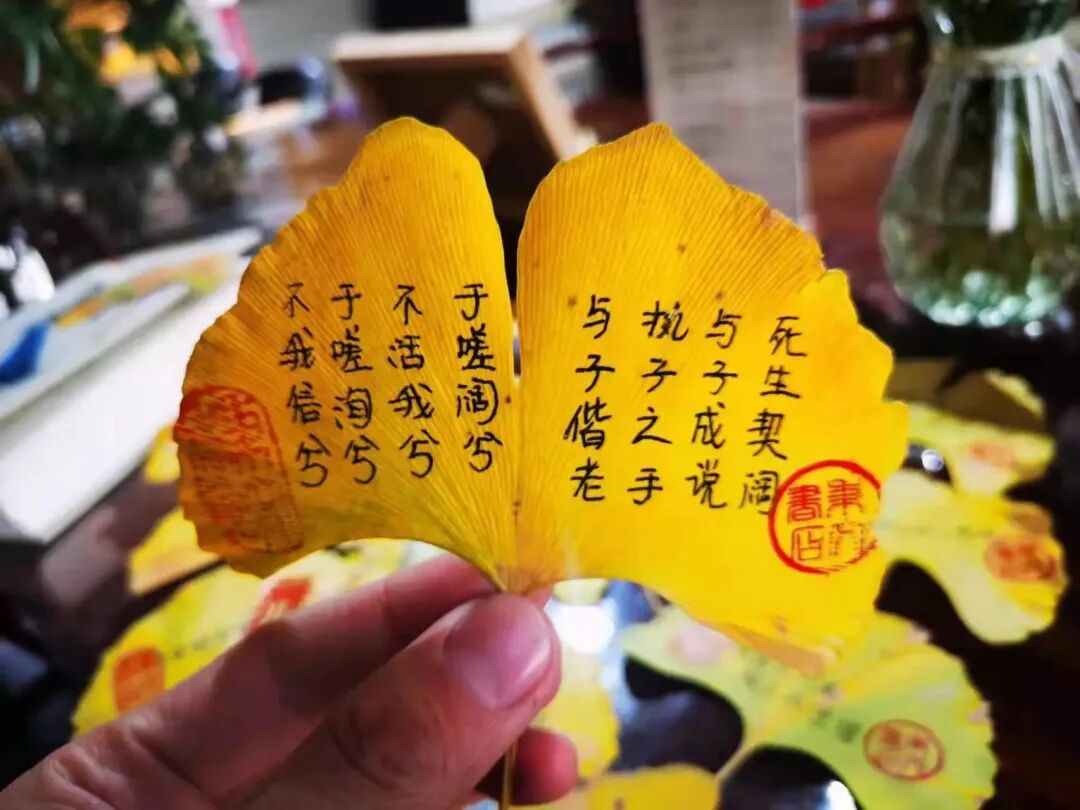 死生契阔
与子成说
执子之手
与子偕老
于嗟阔兮
不活我兮
于嗟洵兮
不我信兮